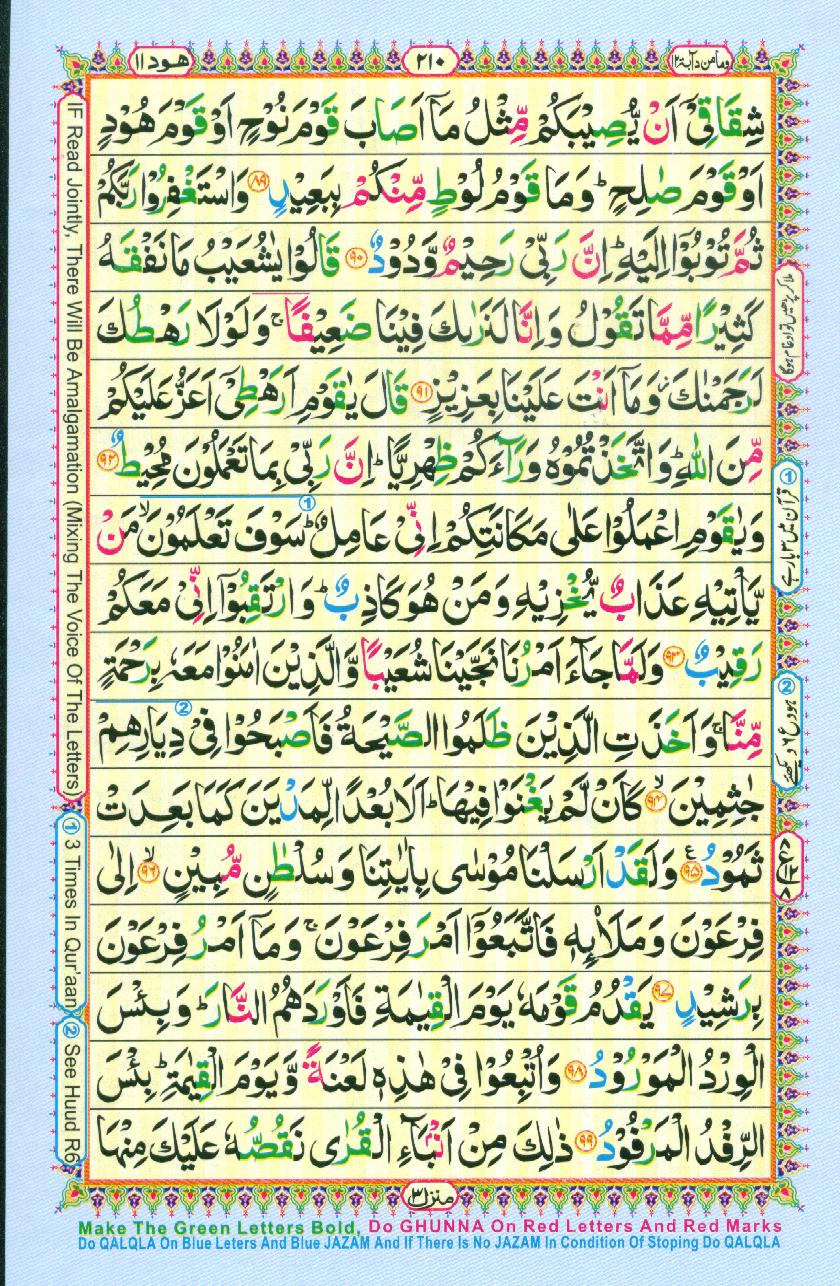 هود ۱۱
۲۱۰
وما من دآبة ۱۲
شِقَاقِیْۤ اَنْ یُّصِیْبَكُمْ مِّثْلُ مَاۤ اَصَابَ قَوْمَ نُوْحٍ اَوْ قَوْمَ هُوْدٍ
اَوْ قَوْمَ صٰلِحٍ ؕ وَمَا قَوْمُ لُوْطٍ مِّنْكُمْ بِبَعِیْدٍ ۸۹ وَاسْتَغْفِرُوْا رَبَّكُمْ
ثُمَّ تُوْبُوْۤا اِلَیْهِ ؕ اِنَّ رَبِّیْ رَحِیْمٌ وَّدُوْدٌ ۹۰ قَالُوْا یٰشُعَیْبُ مَا نَفْقَهُ
كَثِیْرًا مِّمَّا تَقُوْلُ وَاِنَّا لَنَرٰىكَ فِیْنَا ضَعِیْفًا ۚ وَلَوْلَا رَهْطُكَ
لَرَجَمْنٰكَ ؗ وَمَاۤ اَنْتَ عَلَیْنَا بِعَزِیْزٍ ۹۱ قَالَ یٰقَوْمِ اَرَهْطِیْۤ اَعَزُّ عَلَیْكُمْ
مِّنَ اللّٰهِ ؕ وَاتَّخَذْتُمُوْهُ وَرَآءَكُمْ ظِهْرِیًّا ؕ اِنَّ رَبِّیْ بِمَا تَعْمَلُوْنَ مُحِیْطٌ ۹۲
وَیٰقَوْمِ اعْمَلُوْا عَلٰی مَكَانَتِكُمْ اِنِّیْ عَامِلٌ ؕ سَوْفَ تَعْلَمُوْنَ ۙ مَنْ
یَّاْتِیْهِ عَذَابٌ یُّخْزِیْهِ وَمَنْ هُوَ كَاذِبٌ ؕ وَارْتَقِبُوْۤا اِنِّیْ مَعَكُمْ
رَقِیْبٌ ۹۳ وَلَمَّا جَآءَ اَمْرُنَا نَجَّیْنَا شُعَیْبًا وَّالَّذِیْنَ اٰمَنُوْا مَعَهٗ بِرَحْمَةٍ
مِّنَّا ۚ وَاَخَذَتِ الَّذِیْنَ ظَلَمُوا الصَّیْحَةُ فَاَصْبَحُوْا فِیْ دِیَارِهِمْ
جٰثِمِیْنَ ۙ ۹۴ كَاَنْ لَّمْ یَغْنَوْا فِیْهَا ؕ اَلَا بُعْدًا لِّمَدْیَنَ كَمَا بَعِدَتْ
ثَمُوْدُ ۹۵ وَلَقَدْ اَرْسَلْنَا مُوْسٰی بِاٰیٰتِنَا وَسُلْطٰنٍ مُّبِیْنٍ ۙ ۹۶ اِلٰی
فِرْعَوْنَ وَمَلَا۟ئِهٖ فَاتَّبَعُوْۤا اَمْرَ فِرْعَوْنَ ۚ وَمَاۤ اَمْرُ فِرْعَوْنَ
بِرَشِیْدٍ ۹۷ یَقْدُمُ قَوْمَهٗ یَوْمَ الْقِیٰمَةِ فَاَوْرَدَهُمُ النَّارَ ؕ وَبِئْسَ
الْوِرْدُ الْمَوْرُوْدُ ۹۸ وَاُتْبِعُوْا فِیْ هٰذِهٖ لَعْنَةً وَّیَوْمَ الْقِیٰمَةِ ؕ بِئْسَ
الرِّفْدُ الْمَرْفُوْدُ ۹۹ ذٰلِكَ مِنْ اَنْۢبَآءِ الْقُرٰی نَقُصُّهٗ عَلَیْكَ مِنْهَا
منزل ۳
IF Read Jointly, There Will Be Amalgamation (Mixing The Voice Of The Letters)
① 3 Times In Qur'aan
② See Huud R6
ملا کر پڑھیں تو ادغام ہوگا
① قرآن میں ۳ بار ہے
② ہود ع ۶ دیکھئے
Make The Green Letters Bold, Do GHUNNA On Red Letters And Red Marks
Do QALQLA On Blue Leters And Blue JAZAM And If There Is No JAZAM In Condition Of Stoping Do QALQLA